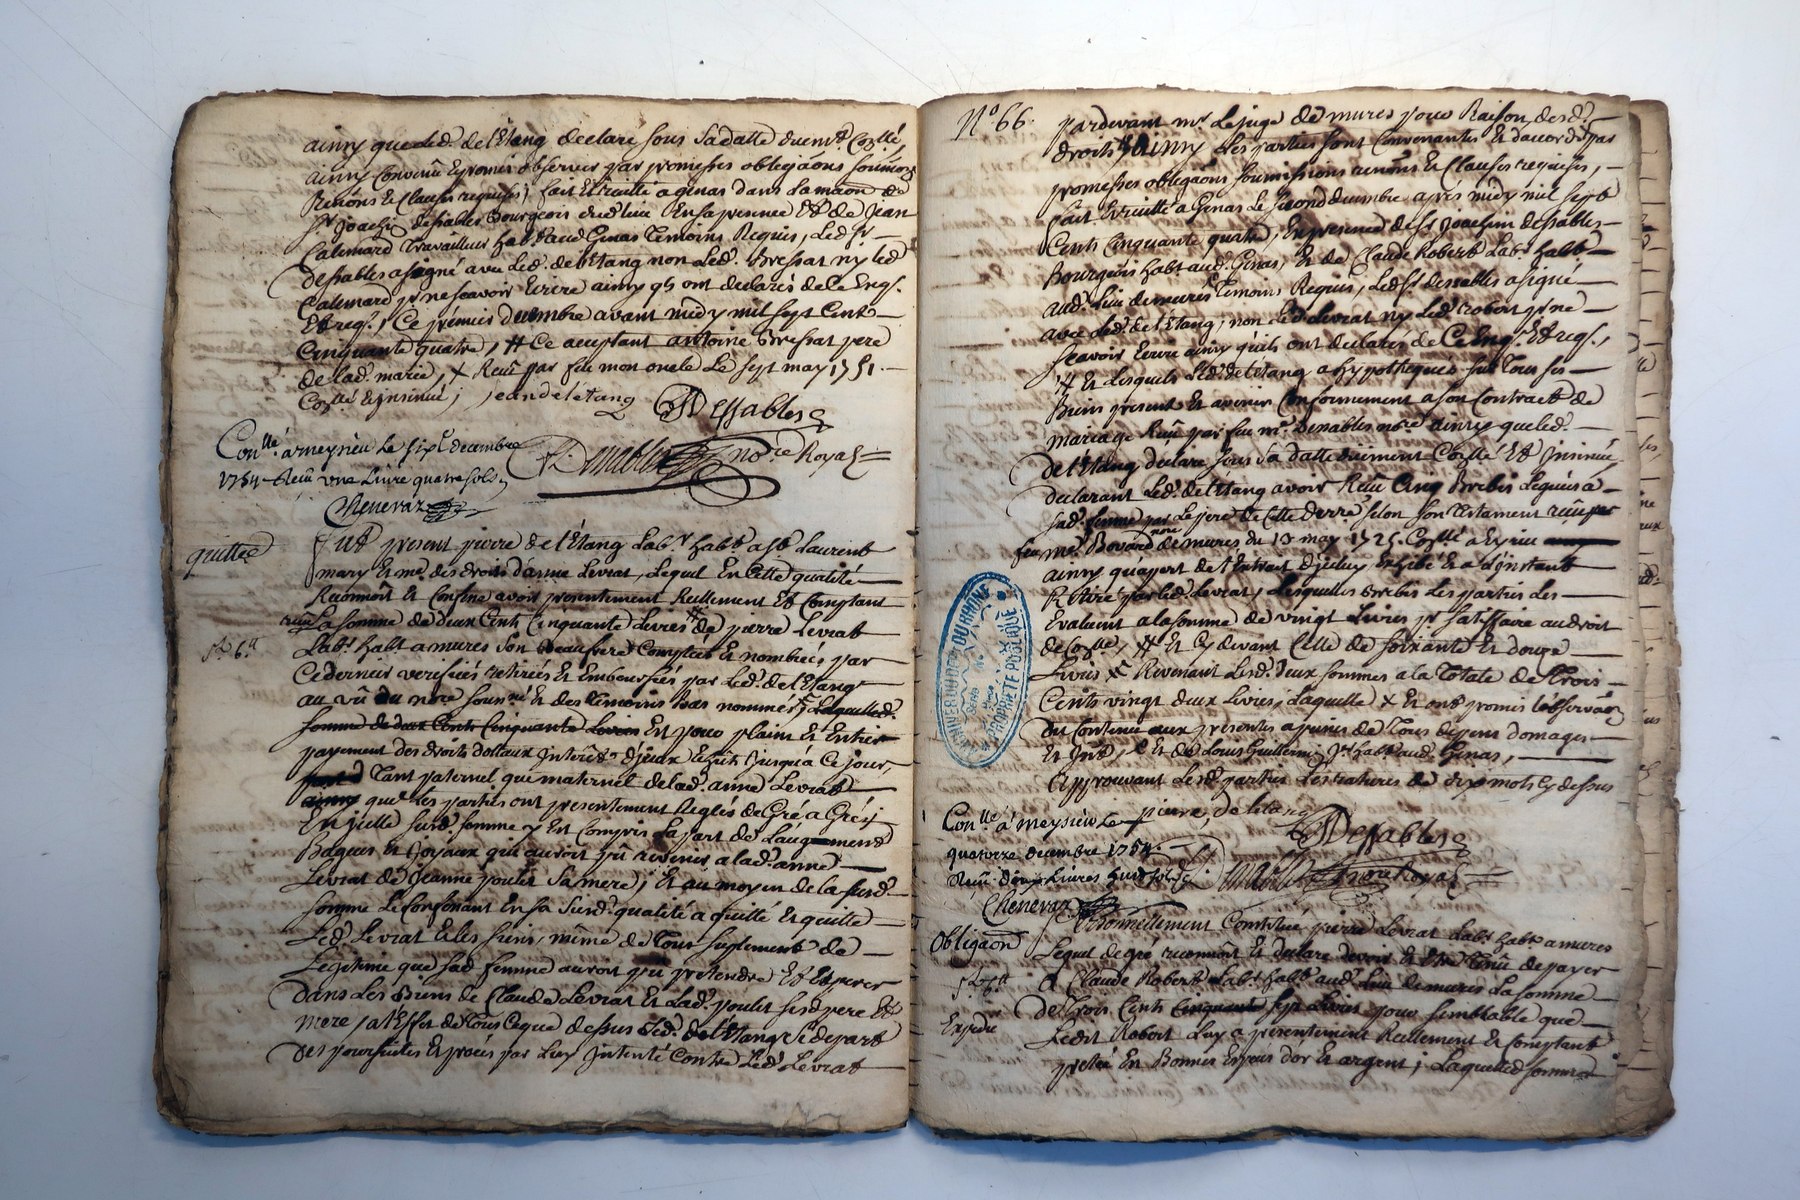 ainsy que led. de l'Etang declare sous sa datte duem.t Con.llé
ainsy convenu et promis observer par promesses obligãons soumons
Renõns et clauses requises; fait et recitté a genas dans la maõn de
Sr. Joachin dessables Bourgeois dud. lieu En sa presence Et de jean
Calemard travailleur hab.t aud. Genas temoins Requis, Led. Sr.
dessables a signé avec Led. de l'Etang non Led. Bressat ny led.
Calemard pr. ne scavoir Ecrire ainsy q.ls ont declarés de ce Enq.s
Et reqs., Ce premier decembre avant midy mil sept Cent
Cinquante quatre, # Ce acceptant antoine Bressat pere
de lad. marie, x Reçu par feu mon oncle Le sept may 1751.
Con.llé et insinué, jean de letang JDessables
Con.llé a meyzieu Le six decembre
1754 Reçu une Livre quatre sols
Cheneraz
Dessables no.re Royal
quittce
fut present pierre de l'Etang Lab.r hab.t a St. Laurent
mary et me. des droits d'anne Levrat, Lequel En cette qualité
Reconnoit et confesse avoir presentement Reellement Et Comptant
reçu La somme de deux Cents Cinquante Livres # de pierre Levrat
Lab.r hab.t a mures son Beaufrere Comptées et nombrées par
Ce dernier verifiées retirées et Emboursées par Led. de l'Etang
au vû du no.re sous.né et des temoins bas nommés; Laquelled.
somme de deux Cents Cinquante Livres Et pour plain Et Entier
payement des droits dottaux Interêts d'jceux Echûs jusqu'a Ce jour,
Tant paternel que maternel de lad. anne Levrat
ainsy que les parties ont presentement Reglés de Gré a Gré;
En jcelle surd. somme y Est Compris La part de L'augment
Bagues et joyaux qui auroit pû revenir a lad. anne
Levrat de jeanne poulet sa mere; Et au moyen de la surd.
somme Le Confessant En sa surd. qualité a quitté Et quitte
Led. Levrat et les siens, même de tous suplement de
Legitime que sad. femme auroit pu pretendre Et Esperer
dans Les Biens de Claude Levrat et Lad. poulet sesd. pere Et
mere, a l'Effet de tous Ceque dessus Led. de l'Etang se depart
des poursuites Et procés par Luy Intenté Contre Led. Levrat
No. 66.
pardevant mr. Le juge de mures pour Raison desd.
droits, ainsy Les parties sont Convenantes Et d'accord par
promesses obligãons soumissions renõns Et Clauses requises,
fait Et recitté a Genas Le second decembre apres midy mil sept
Cents Cinquante quatre, En presence de Sr. Joachin dessables
Bourgeois hab.t aud. Genas, Et de Claude Robert Lab.r hab.t
aud. Lieu de mures temoins Requis, Led. Sr. dessables a signé
avec Led. de l'Etang, non Led. Levrat ny Led. robert pr. ne
scavoir Ecrire ainsy qu'ils ont declarés de Ce Enq. Et reqs.,
# Et Lesquels Led. de l'Etang a hypothequés sur Tous ses
Biens present Et avenir Conformement a son Contract de
mariage Reçu par feu me. Dessables no.re ainsy que led.
de l'Etang declare sous sa datte duement Con.llé Et jnsinué,
declarant Led. de l'Etang avoir Reçu Cinq Brebis Leguées a
sad. femme par Le pere de Cette derre. selon son Testament reçu par
feu me. Bovard de mures du 13 may 1725. Con.llé
ainsy qu'appert de l'Extrait d'jceluy Exhibé Et a L'jnstant
Retiré par led. Levrat, Lesquelles Brebis Les parties Les
Evaluent a la somme de vingt Livres pr. satisfaire au droit
de Con.lle, # Et Cy devant Celle de soixante Et douze
Livres x Revenant Lesd. deux sommes a la Totale de Trois
Cents vingt deux Livres, Laquelle x Et ont promis l'observãon
du Contenu aux presentes a peines de Tous depens domages
Et Jnts., Et de Louis Guillermin hab.t aud. Genas,
approuvant Lesd. parties Les ratures de dix mots Cy dessus
pierre de letang JDessables
Con.llé a Meyzieu Le
quatorze decembre 1754.
Reçu deux Livres huit sols
Cheneraz
Dessables no.re Royal
Obligãon
Expedié
Personnellement Constitué pierre Levrat Lab.r hab.t a mures
Lequel de gré reconnoit Et declare devoir Et Etre Tenû de payer
a Claude Robert Lab.r hab.t aud. Lieu de mures La somme
de Trois Cents Cinquante sept Livres pour semblable que
Ledit Robert Luy a presentement Reellement Et Comptant
prêtée En Bonnes Especes d'or Et argent; Laquelled. somme
ARCHIVES DU DEP. DU RHONE
PROPRIÉTÉ PUBLIQUE